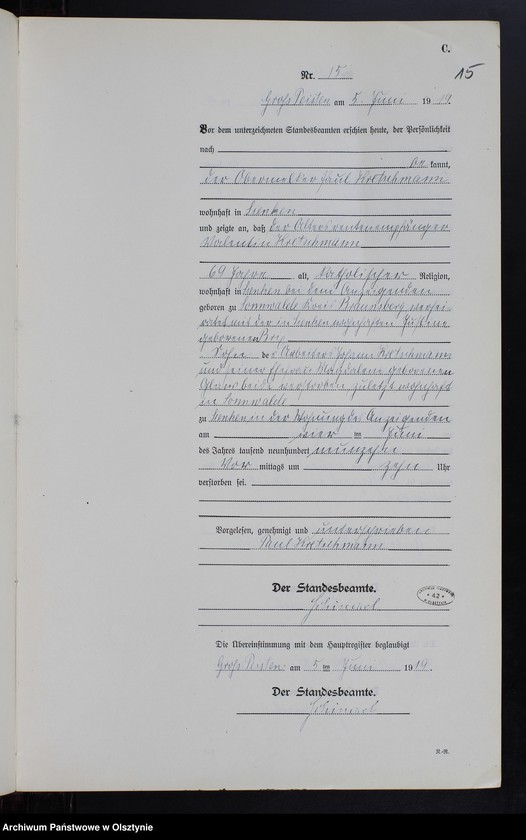 C.
15
Nr. 15
Groß Peisten am 5. Juni 1919.
Vor dem unterzeichneten Standesbeamten erschien heute, der Persönlichkeit
nach
be kannt,
der Obermelker Paul
wohnhaft in
und zeigte an, daß der Altersrentenempfänger
Valentin
69 Jahre alt, katholischer Religion,
wohnhaft in bei dem Anzeigenden
geboren zu Sonnwalde Kreis Braunsberg, verhei-
ratet mit der in wohnhaften Justine
geborenen
Sohn des Arbeiters Johann
und seiner Ehefrau Magdalene geborenen
beide verstorben zuletzt wohnhaft
in Sonnwalde
zu in der Wohnung des Anzeigenden
am vier im Juni
des Jahres tausend neunhundert neunzehn
Vor mittags um zehn Uhr
verstorben sei.
Vorgelesen, genehmigt und unterschrieben
Paul
Der Standesbeamte.
Die Übereinstimmung mit dem Hauptregister beglaubigt
Groß Peisten am 5 im Juni 1919.
Der Standesbeamte.
Archiwum Państwowe w Olsztynie